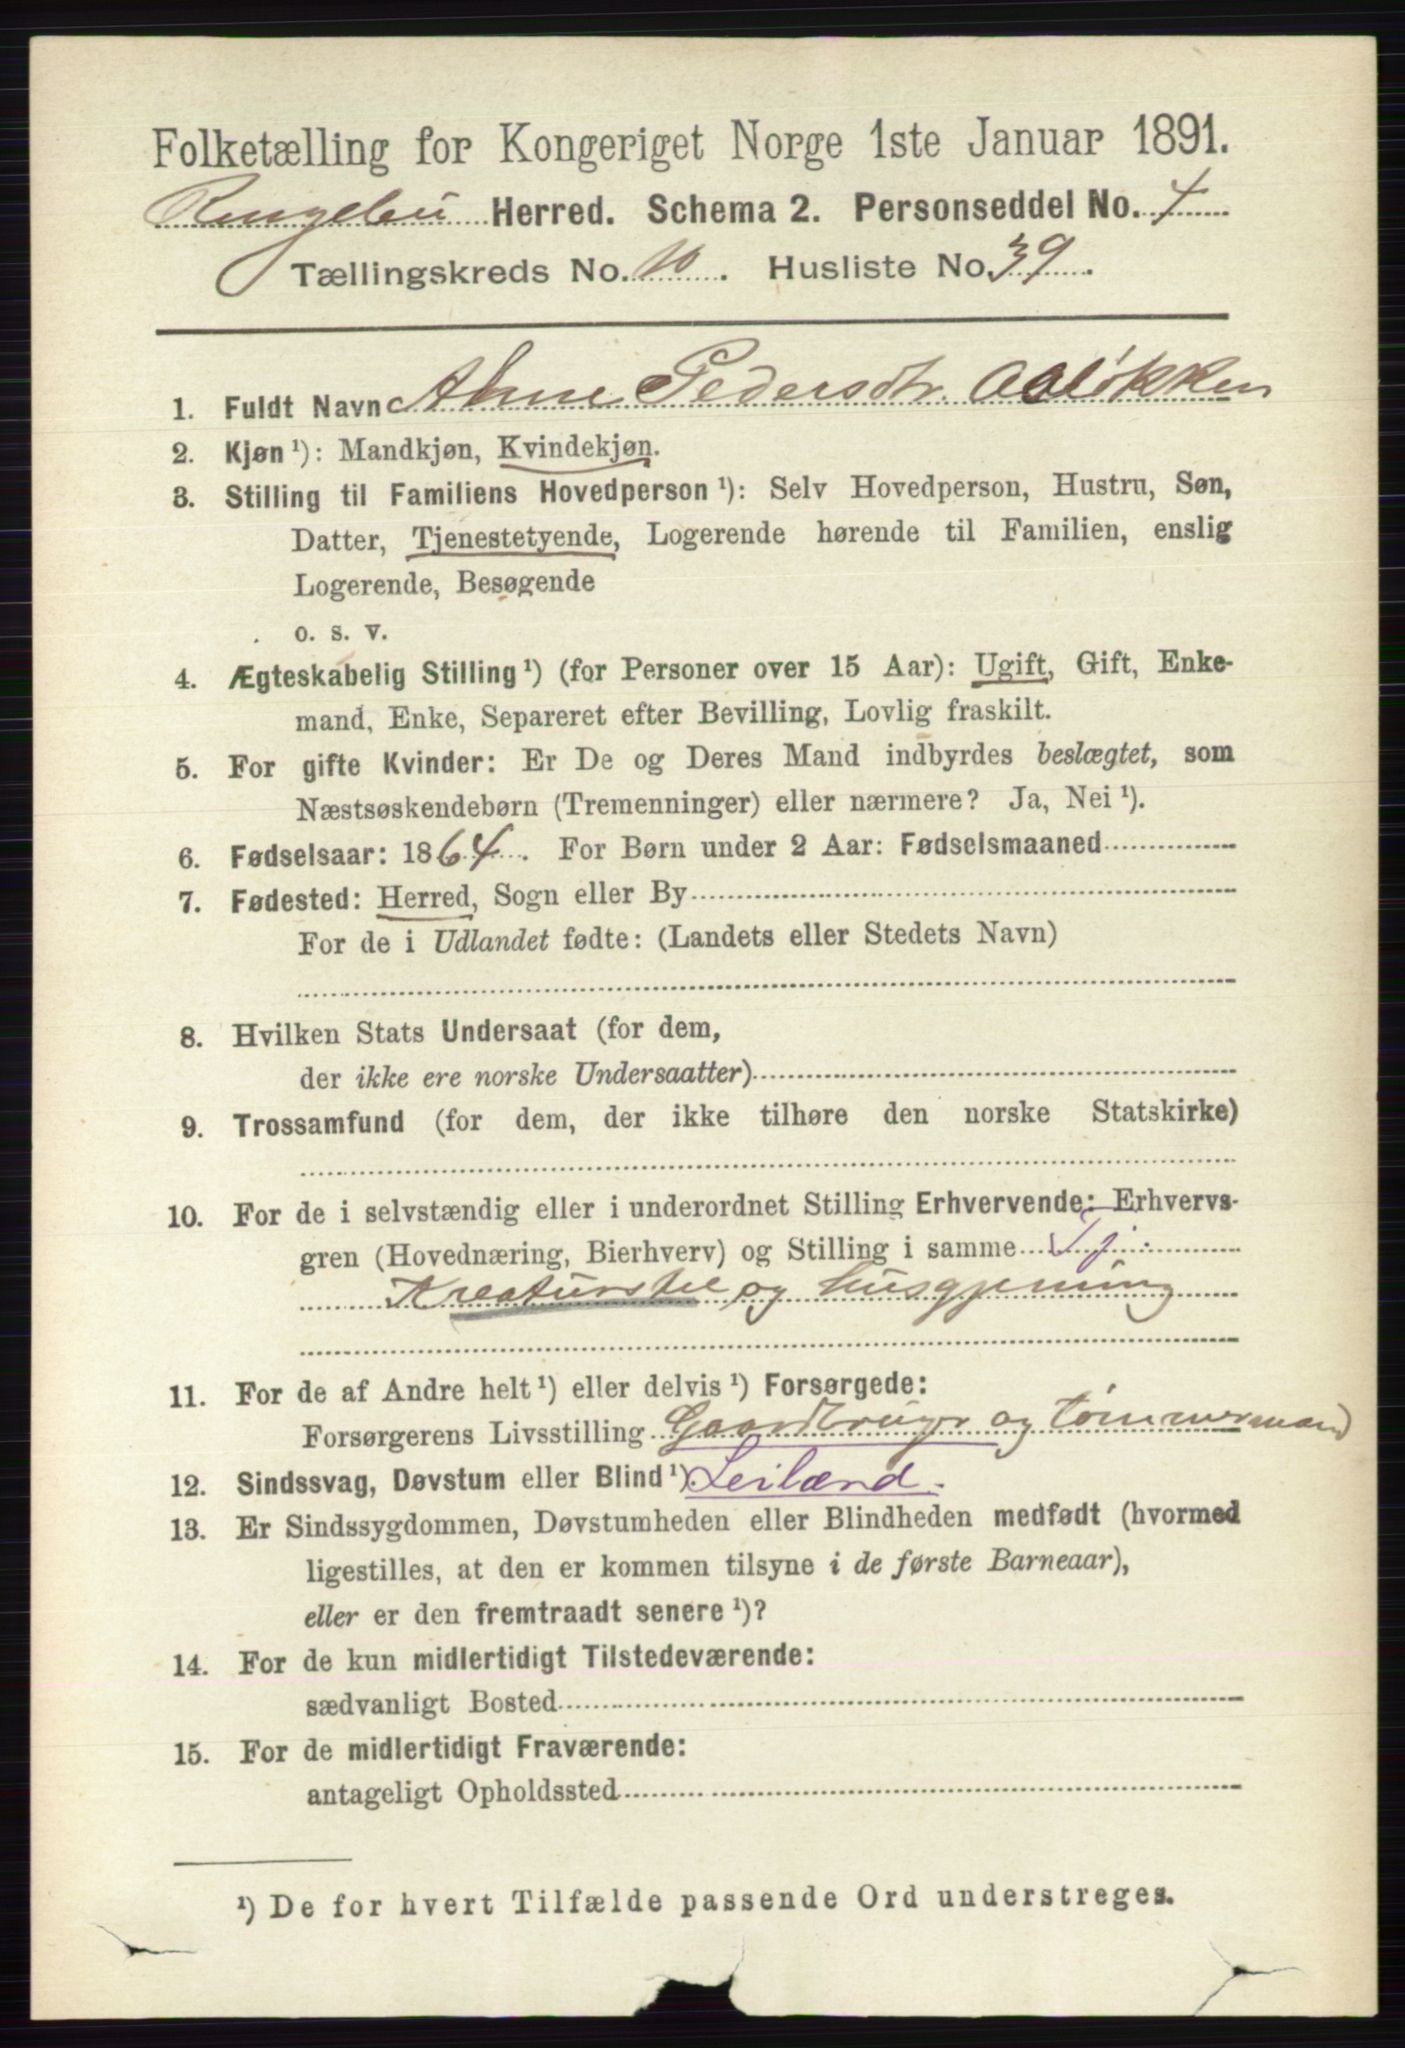 Folketælling for Kongeriget Norge 1ste Januar 1891.
Ringebu Herred. Schema 2. Personseddel No. 4
Tællingskreds No. 10. Husliste No. 39.
1. Fuldt Navn Anne Pedersdtr. Aaløkken
2. Kjøn ¹): Mandkjøn, Kvindekjøn.
3. Stilling til Familiens Hovedperson ¹): Selv Hovedperson, Hustru, Søn,
Datter, Tjenestetyende, Logerende hørende til Familien, enslig
Logerende, Besøgende
o. s. v.
4. Ægteskabelig Stilling ¹) (for Personer over 15 Aar): Ugift, Gift, Enke-
mand, Enke, Separeret efter Bevilling, Lovlig fraskilt.
5. For gifte Kvinder: Er De og Deres Mand indbyrdes beslægtet, som
Næstsøskendebørn (Tremenninger) eller nærmere? Ja, Nei ¹).
6. Fødselsaar: 1864. For Børn under 2 Aar: Fødselsmaaned
7. Fødested: Herred, Sogn eller By
For de i Udlandet fødte: (Landets eller Stedets Navn)
8. Hvilken Stats Undersaat (for dem,
der ikke ere norske Undersaatter)
9. Trossamfund (for dem, der ikke tilhøre den norske Statskirke)
10. For de i selvstændig eller i underordnet Stilling Erhvervende: Erhvervs-
gren (Hovednæring, Bierhverv) og Stilling i samme Tj.
Kreaturstel og husgjerning
11. For de af Andre helt ¹) eller delvis ¹) Forsørgede:
Forsørgerens Livsstilling Gaardbruger og tømmermand
12. Sindssvag, Døvstum eller Blind ¹). Leilænd.
13. Er Sindssygdommen, Døvstumheden eller Blindheden medfødt (hvormed
ligestilles, at den er kommen tilsyne i de første Barneaar),
eller er den fremtraadt senere ¹)?
14. For de kun midlertidigt Tilstedeværende:
sædvanligt Bosted
15. For de midlertidigt Fraværende:
antageligt Opholdssted
¹) De for hvert Tilfælde passende Ord understreges.